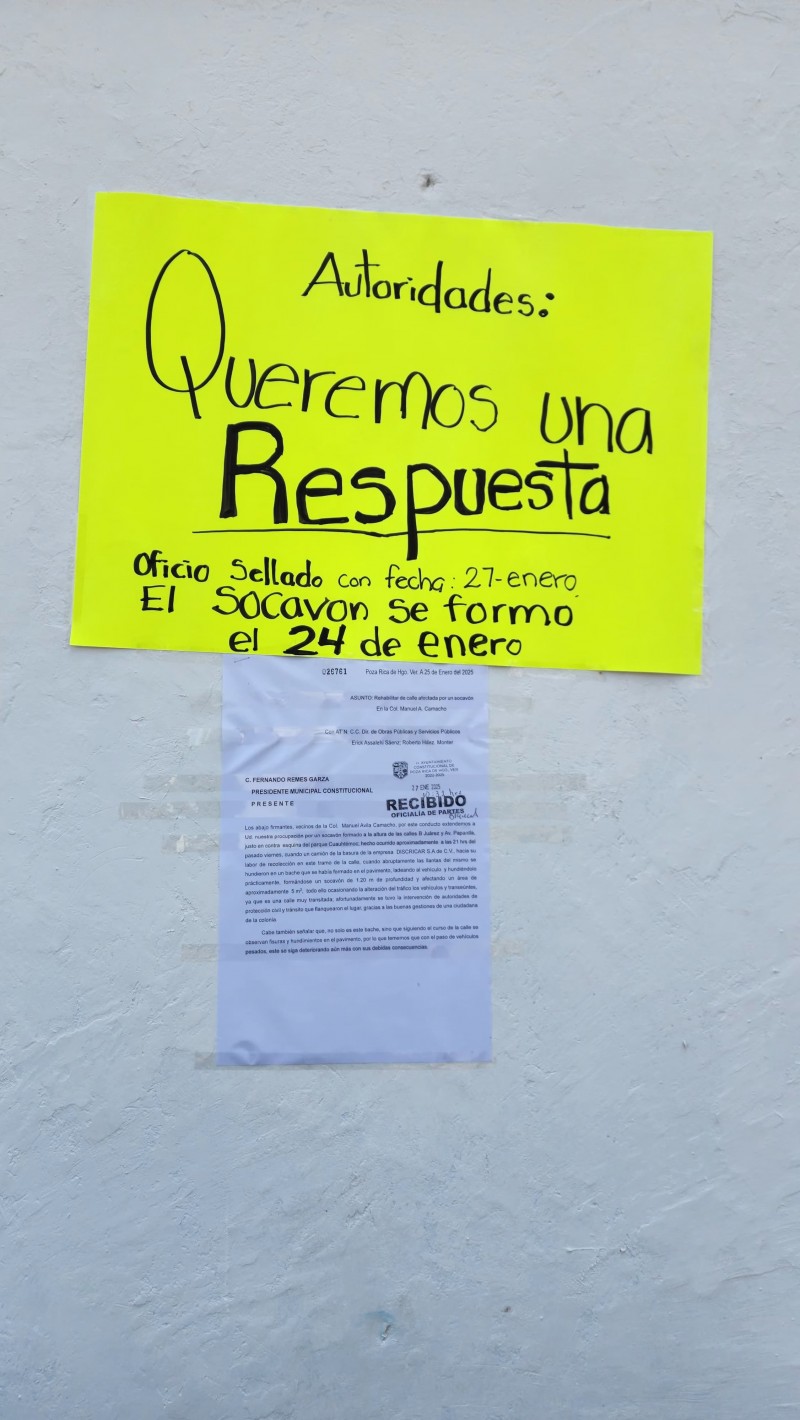 Autoridades:
Queremos una
Respuesta
Oficio Sellado con fecha: 27-enero
El Socavon se formo
el 24 de enero
026761 Poza Rica de Hgo. Ver. A 25 de Enero del 2025
ASUNTO: Rehabilitar de calle afectada por un socavón
En la Col. Manuel A. Camacho
Con AT´N. C.C. Dir. de Obras Públicas y Servicios Públicos
Erick Assaleihi Sáenz; Roberto Vélez. Montier
H. AYUNTAMIENTO
CONSTITUCIONAL DE
C. FERNANDO REMES GARZA
PRESIDENTE MUNICIPAL CONSTITUCIONAL
P R E S E N T E
ENE 2025
RECIBIDO
OFICIALIA DE PARTES
Los abajo firmantes, vecinos de la Col. Manuel Avila Camacho, por este conducto extendemos a
Ud. nuestra preocupación por un socavón formado a la altura de las calles B Juárez y Av. Papantla,
justo en contra esquina del parque Cuauhtémoc; hecho ocurrido aproximadamente a las 21 hrs del
pasado viernes, cuando un camión de la basura de la empresa. DISCRICAR S.A de C.V, hacia su
labor de recolección en este tramo de la calle, cuando abruptamente las llantas del mismo se
hundieron en un bache que se había formado en el pavimento, ladeando al vehículo y hundiéndolo
prácticamente, formándose un socavón de 1.20 m de profundidad y afectando un área de
aproximadamente 5 m², todo ello ocasionando la alteración del tráfico los vehículos y transeúntes,
ya que es una calle muy transitada; afortunadamente se tuvo la intervención de autoridades de
protección civil y tránsito que flanquearon el lugar, gracias a las buenas gestiones de una ciudadana
de la colonia.
Cabe también señalar que, no solo es este bache, sino que siguiendo el curso de la calle se
observan fisuras y hundimientos en el pavimento, por lo que tememos que con el paso de vehículos
pesados, este se siga deteriorando aún más con sus debidas consecuencias.